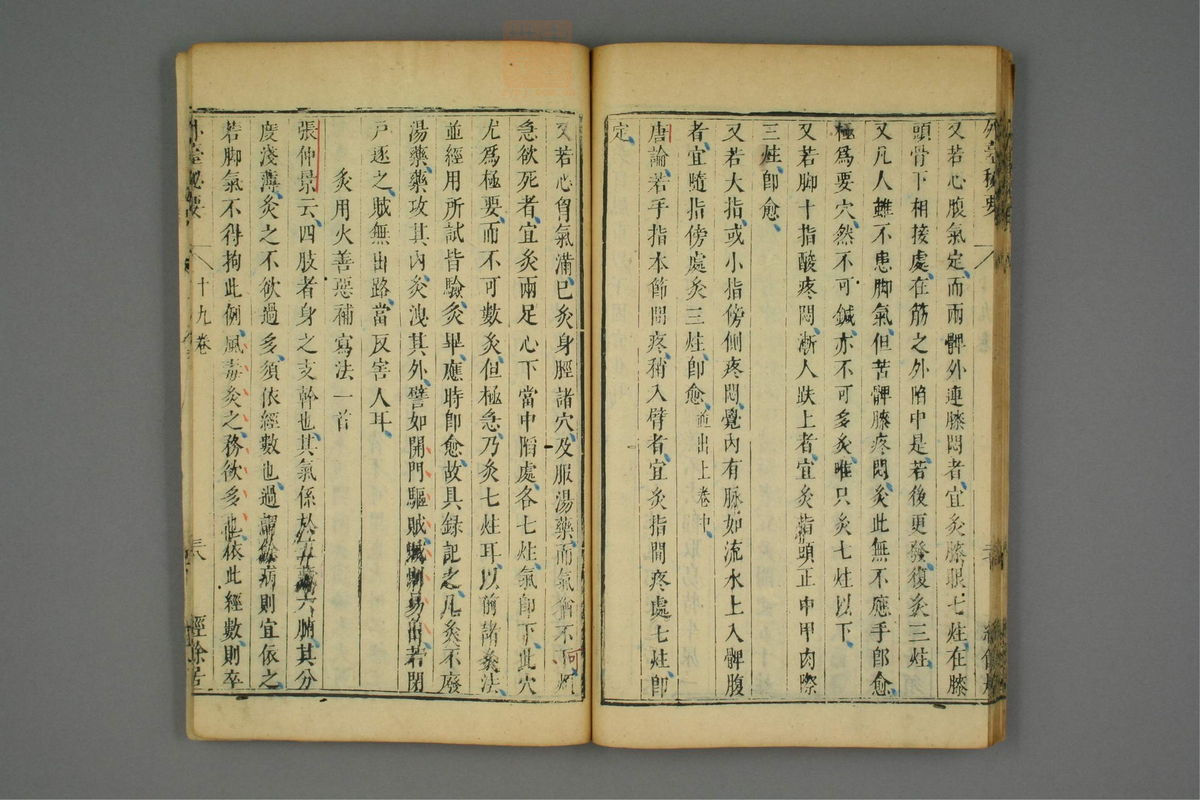 又若心腹氣定而兩髀外連膝悶者宜灸膝眼七炷在膝
頭骨下相接處在筋之外陷中是若後更發復灸三炷
又凡人雖不患脚氣但苦髀膝疼悶灸此無不應手卽愈
極爲要穴然不可鍼亦不可多灸唯只灸七炷以下
又若脚十指酸疼悶漸人趺上者宜灸指頭正中甲肉際
三炷卽愈
又若大指或小指傍側疼悶覺內有脉如流水上入髀腹
者宜隨指傍處灸三炷卽愈並出上卷中
唐論若手指本節間疼稍入臂者宜灸指間疼處七炷卽
定
又若心胷氣滿已灸身脛諸穴及服湯藥而氣猶不下
急欲死者宜灸兩足心下當中陷處各七炷氣卽下此穴
尤爲極要而不可數灸但極急乃灸七炷耳以前諸灸法
並經用所試皆驗灸畢應時卽愈故具錄記之凡灸不廢
湯藥藥攻其內灸洩其外譬如開門驅賊賊則易出若閉
戸逐之賊無出路當反害人耳
灸用火善惡補瀉法一首
張仲景云四肢者身之支幹也其氣係於五藏六腑其分
度淺薄灸之不欲過多須依經數也過謂餘病則宜依之
若脚氣不得拘此例風毒灸之務欲多也依此經數則卒
外臺秘要
十九卷
經餘居
外臺秘要